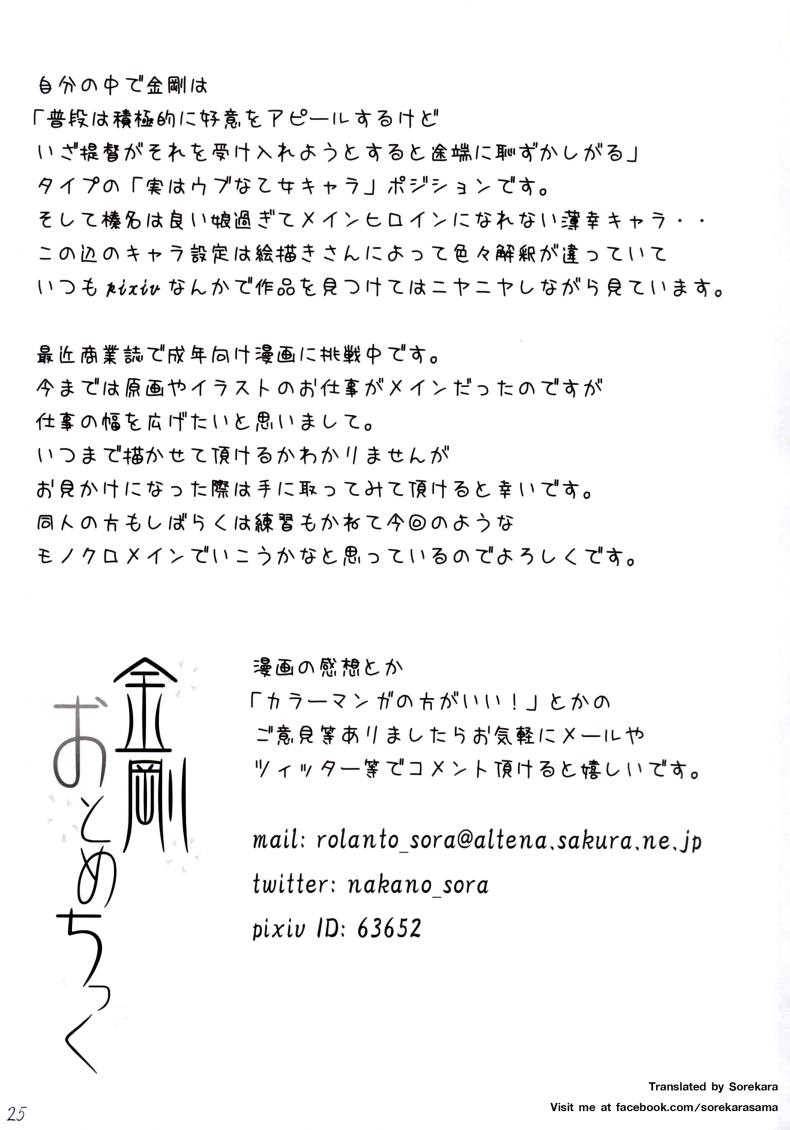 自分の中で金剛は
「普段は積極的に好意をアピールするけど
いざ提督がそれを受け入れようとすると途端に恥ずかしがる」
タイプの「実はウブな乙女キャラ」ポジションです。
そして榛名は良い娘過ぎてメインヒロインになれない薄幸キャラ・・
この辺のキャラ設定は絵描きさんによって色々解釈が違っていて
いつもpixivなんかで作品を見つけてはニヤニヤしながら見ています。
最近商業誌で成年向け漫画に挑戦中です。
今までは原画やイラストのお仕事がメインだったのですが
仕事の幅を広げたいと思いまして。
いつまで描かせて頂けるかわかりませんが
お見かけになった際は手に取ってみて頂けると幸いです。
同人の方もしばらくは練習もかねて今回のような
モノクロメインでいこうかなと思っているのでよろしくです。
金剛
おとめちっく
漫画の感想とか
「カラーマンガの方がいい！」とかの
ご意見等ありましたらお気軽にメールや
ツィッター等でコメント頂けると嬉しいです。
mail: rolanto_sora@altena.sakura.ne.jp
twitter: nakano_sora
pixiv ID: 63652
Translated by Sorekara
Visit me at facebook.com/sorekarasama
25